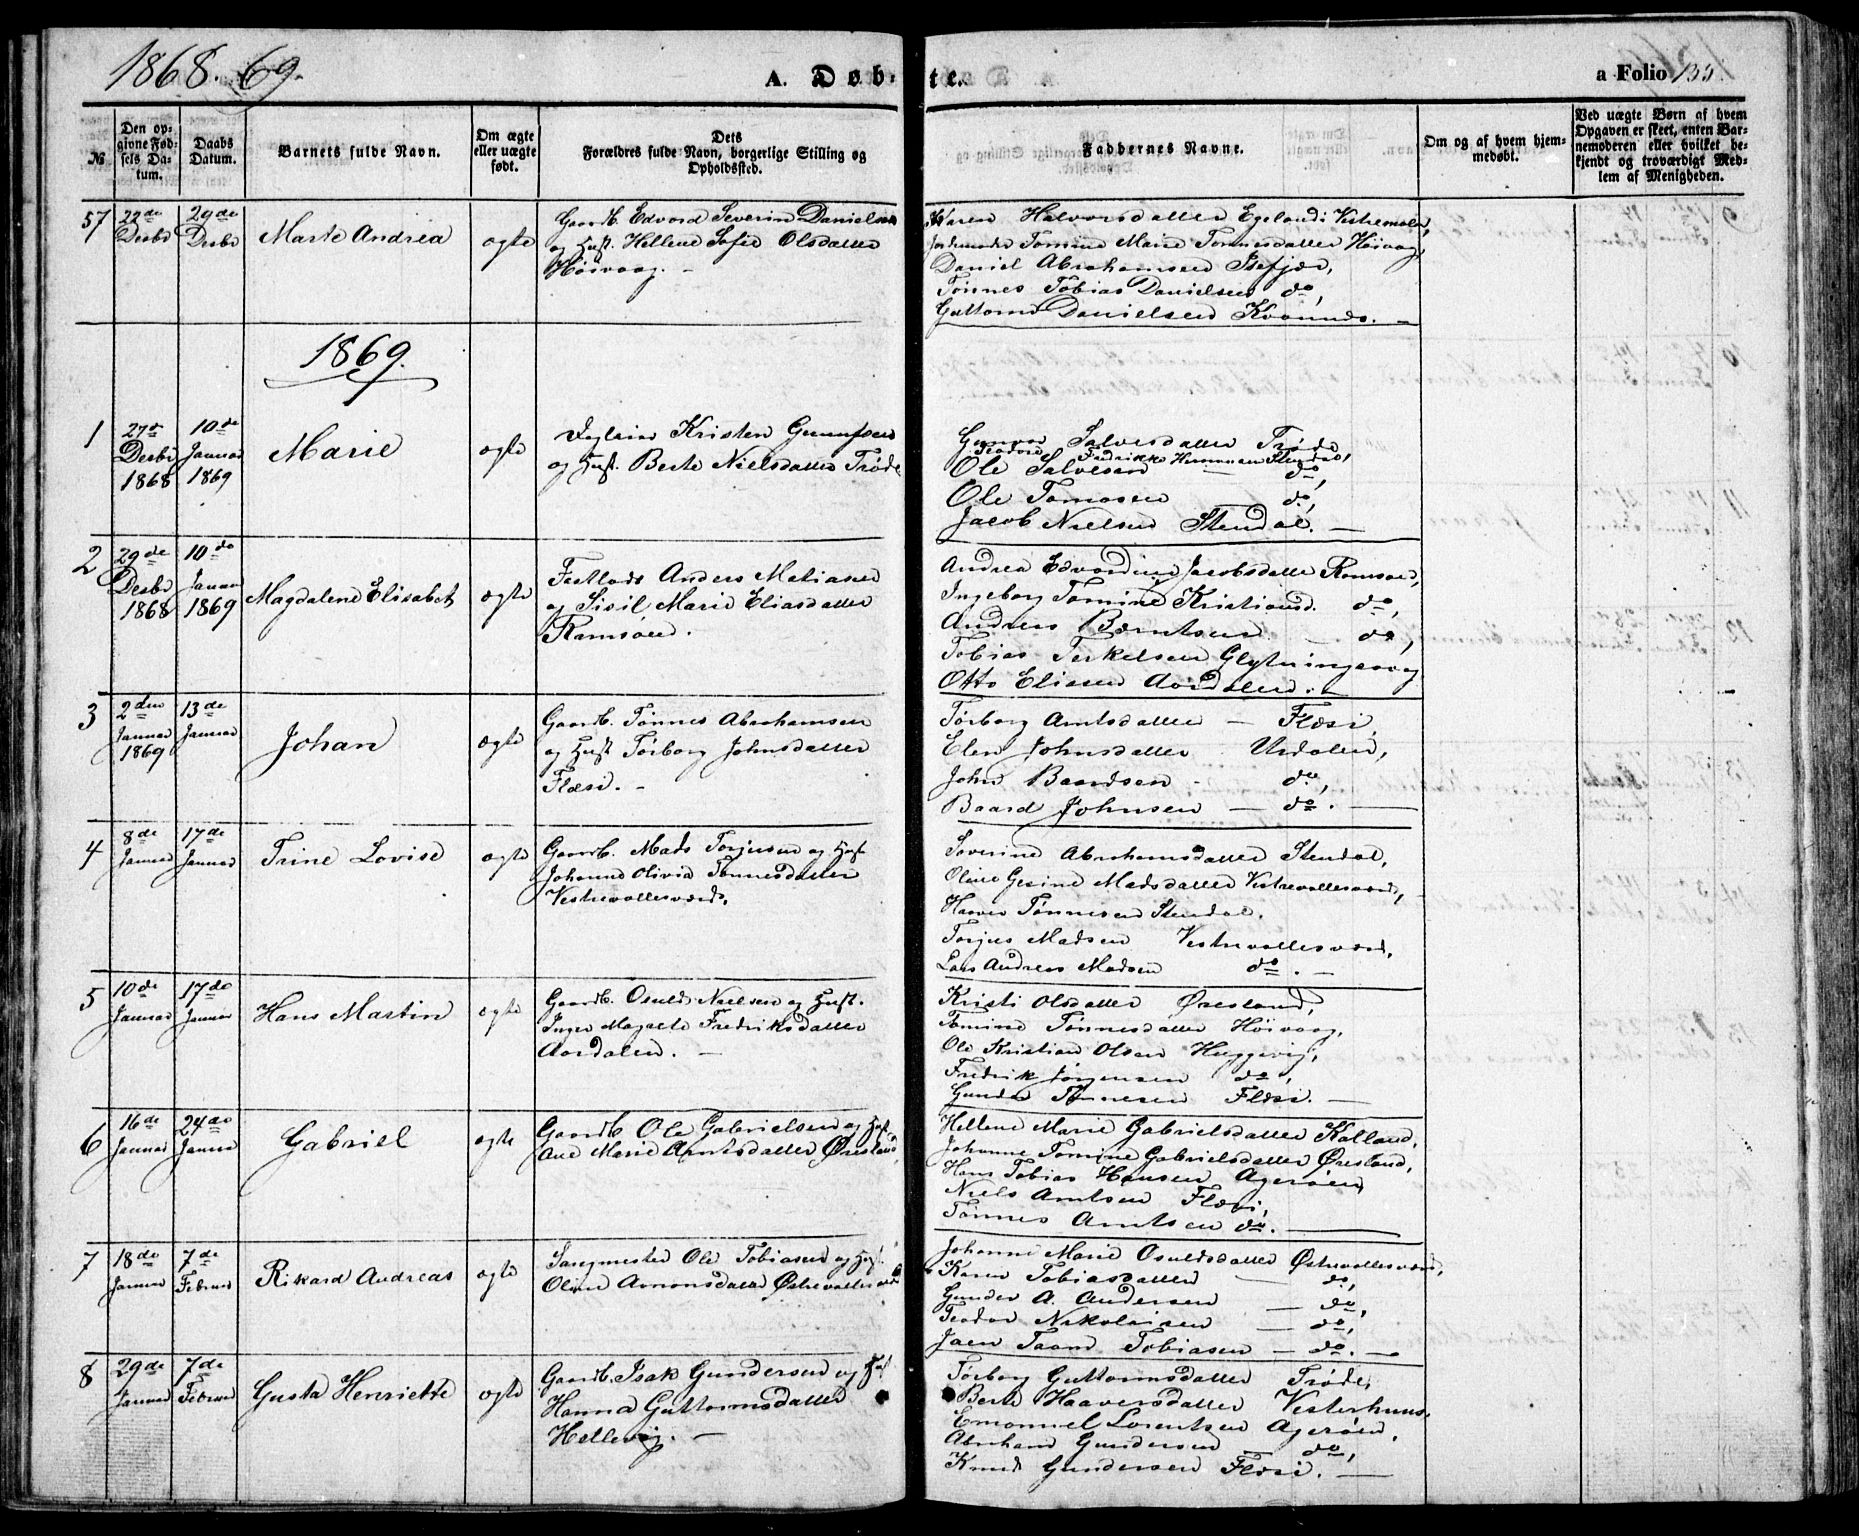 1868. 69.
A. Døbte.
a Folio 135.
No.
Den opgivne Fødsels Datum.
Daabs Datum.
Barnets fulde Navn.
Om ægte eller uægte født.
Dets Forældres fulde Navn, borgerlige Stilling og Opholdssted.
Faddernes Navne.
Om og af hvem hjemmedøbt.
Ved uægte Børn af hvem Opgaven er skeet, enten Barnemoderen eller hvilket bekjendt og troværdigt Medlem af Menigheden.
57
22de Desbr
29de Desbr
Marte Andrea
ægte
Gaardb. Edvard Severin Danielsen
og Hust. Hellene Sofie Olsdatter
Høivaag. -
Karen Halvorsdatter Egeland i Vestremoland,
Jordmoder Tomine Marie Tønnesdatter Høivaag,
Daniel Abrahamsen Isefjær,
Tønnes Tobias Danielsen do,
Guttorm Danielsen Kvannes. -
1869.
1
27de Desbr 1868
10de Januar 1869
Marie
ægte
Kristen Gunufsen
og Hust. Berte Nielsdatter Trøde
Gunvor Salvesdatter Trøde,
Teodora Fredrikke Hermansen Stendal,
Ole Salvesen do,
Ole Tomasen do,
Jacob Nielsen Stendal. -
2
29de Desbr 1868
10de Januar 1869
Magdalene Elisabet
ægte
Anders Matiasen
og Sisil Marie Eliasdatter
Ramsøen.
Andrea Edvardine Jacobsdatter Ramsøen,
Ingeborg Tomine Kristiansd. do,
Andreas Berntsen - do,
Tobias Terkelsen Glytningsvog
Otto Eliasen Aardalen. -
3
2den Januar 1869
13de Januar
Johan
ægte
Gaardb. Tønnes Abrahamsen
og Hust Tørborg Johnsdatter
Flæsi. -
Tørborg Arntsdatter - Flæsi,
Elen Johnsdatter Urdalen,
John Baardsen - do,
Baard Johnsen - do. -
4
8de Januar
17de Januar
Trine Lovise
ægte
Gaardb. Mads Torjusen og Hust
Johanne Olivia Tønnesdatter
Vestrevallesværd.
Severine Abrahamsdatter Stendal,
Oline Gesine Madsdatter Vestrevallesværd,
Haaver Tønnesen Stendal,
Torjus Madsen Vestrevallesværd,
Lars Andreas Madsen do. -
5
10de Januar
17de Januar
Hans Martin
ægte
Gaardb. Osuld Nielsen og Hust.
Inger Magrete Fredriksdatter
Aardalen. -
Kristi Olsdatter Øresland,
Tomine Tønnesdatter Høivaag,
Ole Kristian Olsen Hæggevig,
Fredrik Jørgensen do,
Gunder Tønnesen Flæsi. -
6
16de Januar
24de Januar
Gabriel
ægte
Gaardb. Ole Gabrielsen og Hust
Ane Marie Arntsdatter Øresland,
Hellene Marie Gabrielsdatter Kalland,
Johanne Tomine Gabrielsdatter Øresland,
Hans Tobias Hansen Agerøen,
Niels Arntsen Flæsi,
Tønnes Arntsen do. -
7
18de Januar
7de Februar
Rikard Andreas
ægte
Sangmester Ole Tobiasen og Hust
Oline Aronsdatter Østrevallesværd
Johanne Marie Osuldsdatter Østrevallesværd,
Karen Tobiasdatter - do,
Gunder A. Andersen - do,
Teodor Nikolaisen - do,
Jaen Taan Tobiasen - do. -
8
29de Januar
7de Februar
Gusta Henriette
ægte
Gaardb. Isak Gundersen og Hust
Hanna Guttormsdatter
Hellevig. -
Tørborg Guttormsdatter Trøde,
Berte Haaversdatter Vesterhuus,
Emanuel Lorentsen Agerøen,
Abraham Gundersen do,
Knud Gundersen Flæsi. -